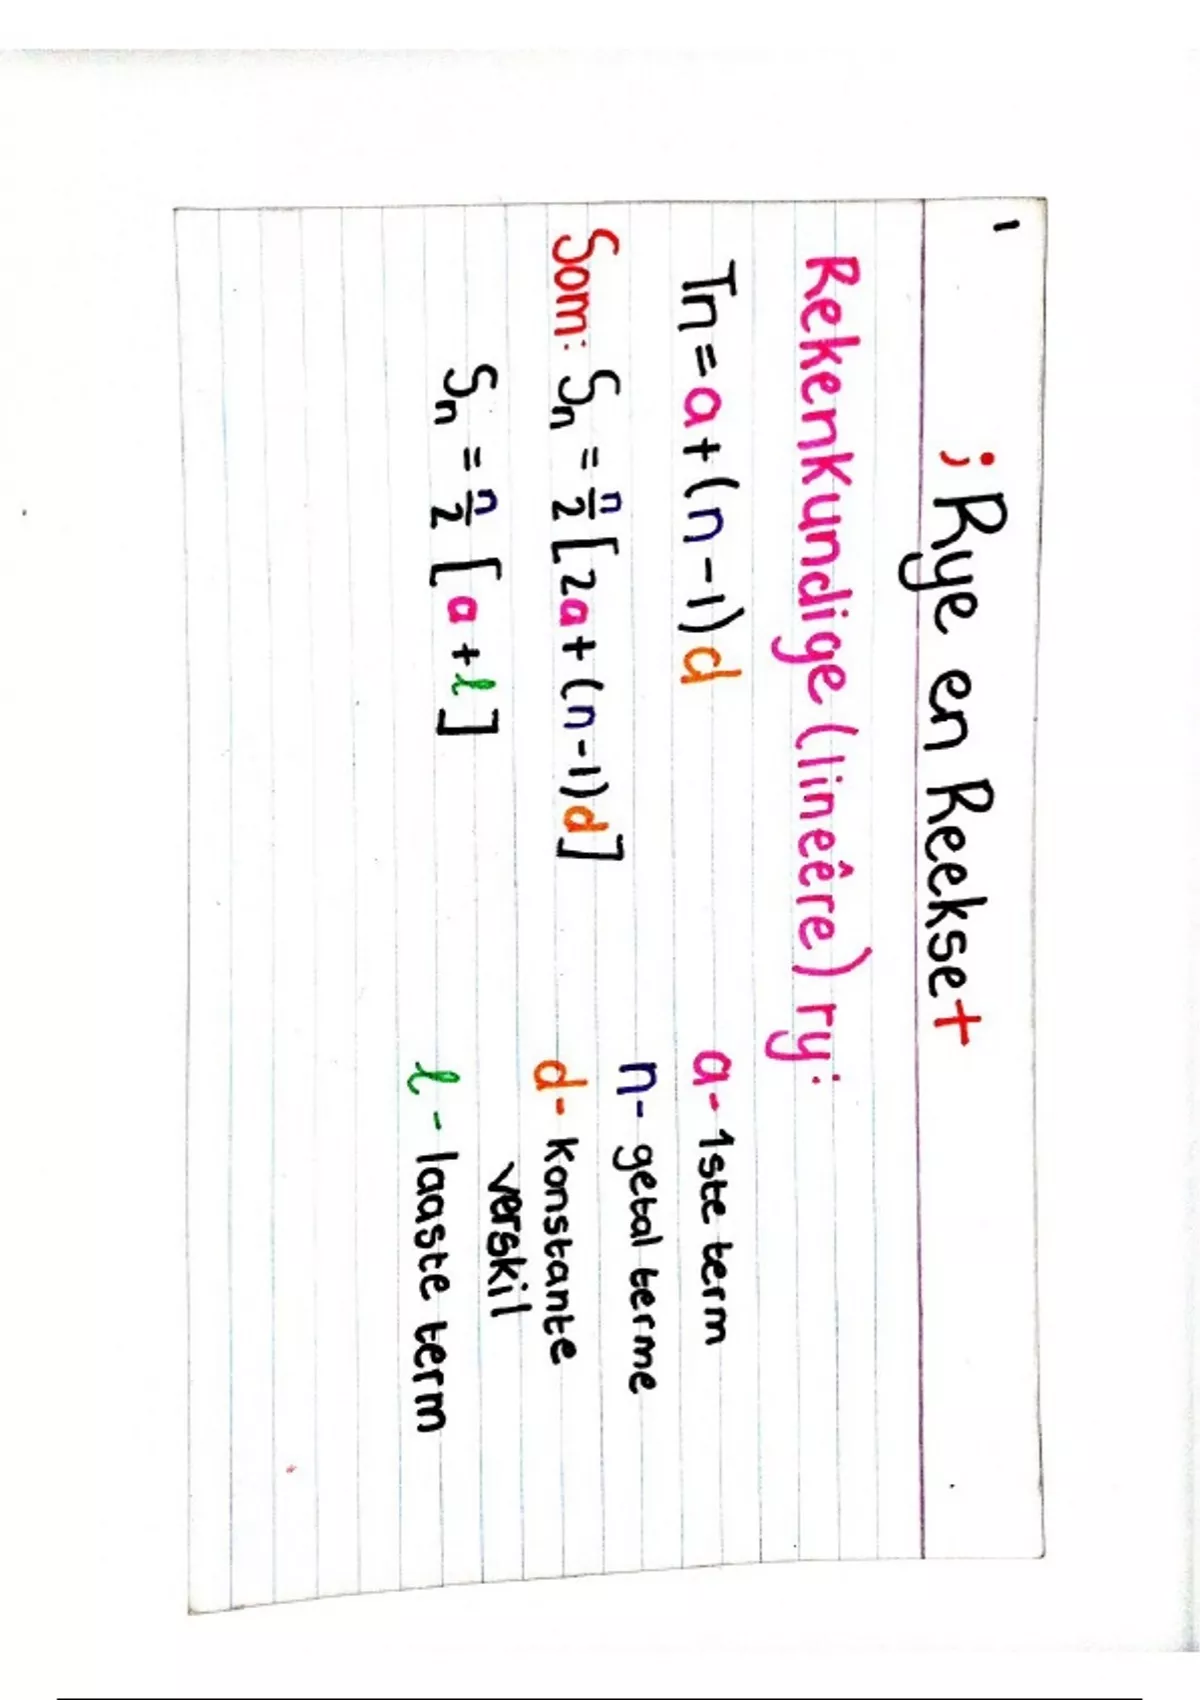 1
; Rye en Reekse +
Rekenkundige (lineêre) ry:
Tn = a + (n - 1) d
Som: Sn = n/2 [2a + (n - 1) d]
Sn = n/2 [a + l]
a - 1ste term
n - getal terme
d - konstante
verskil
l - laaste term